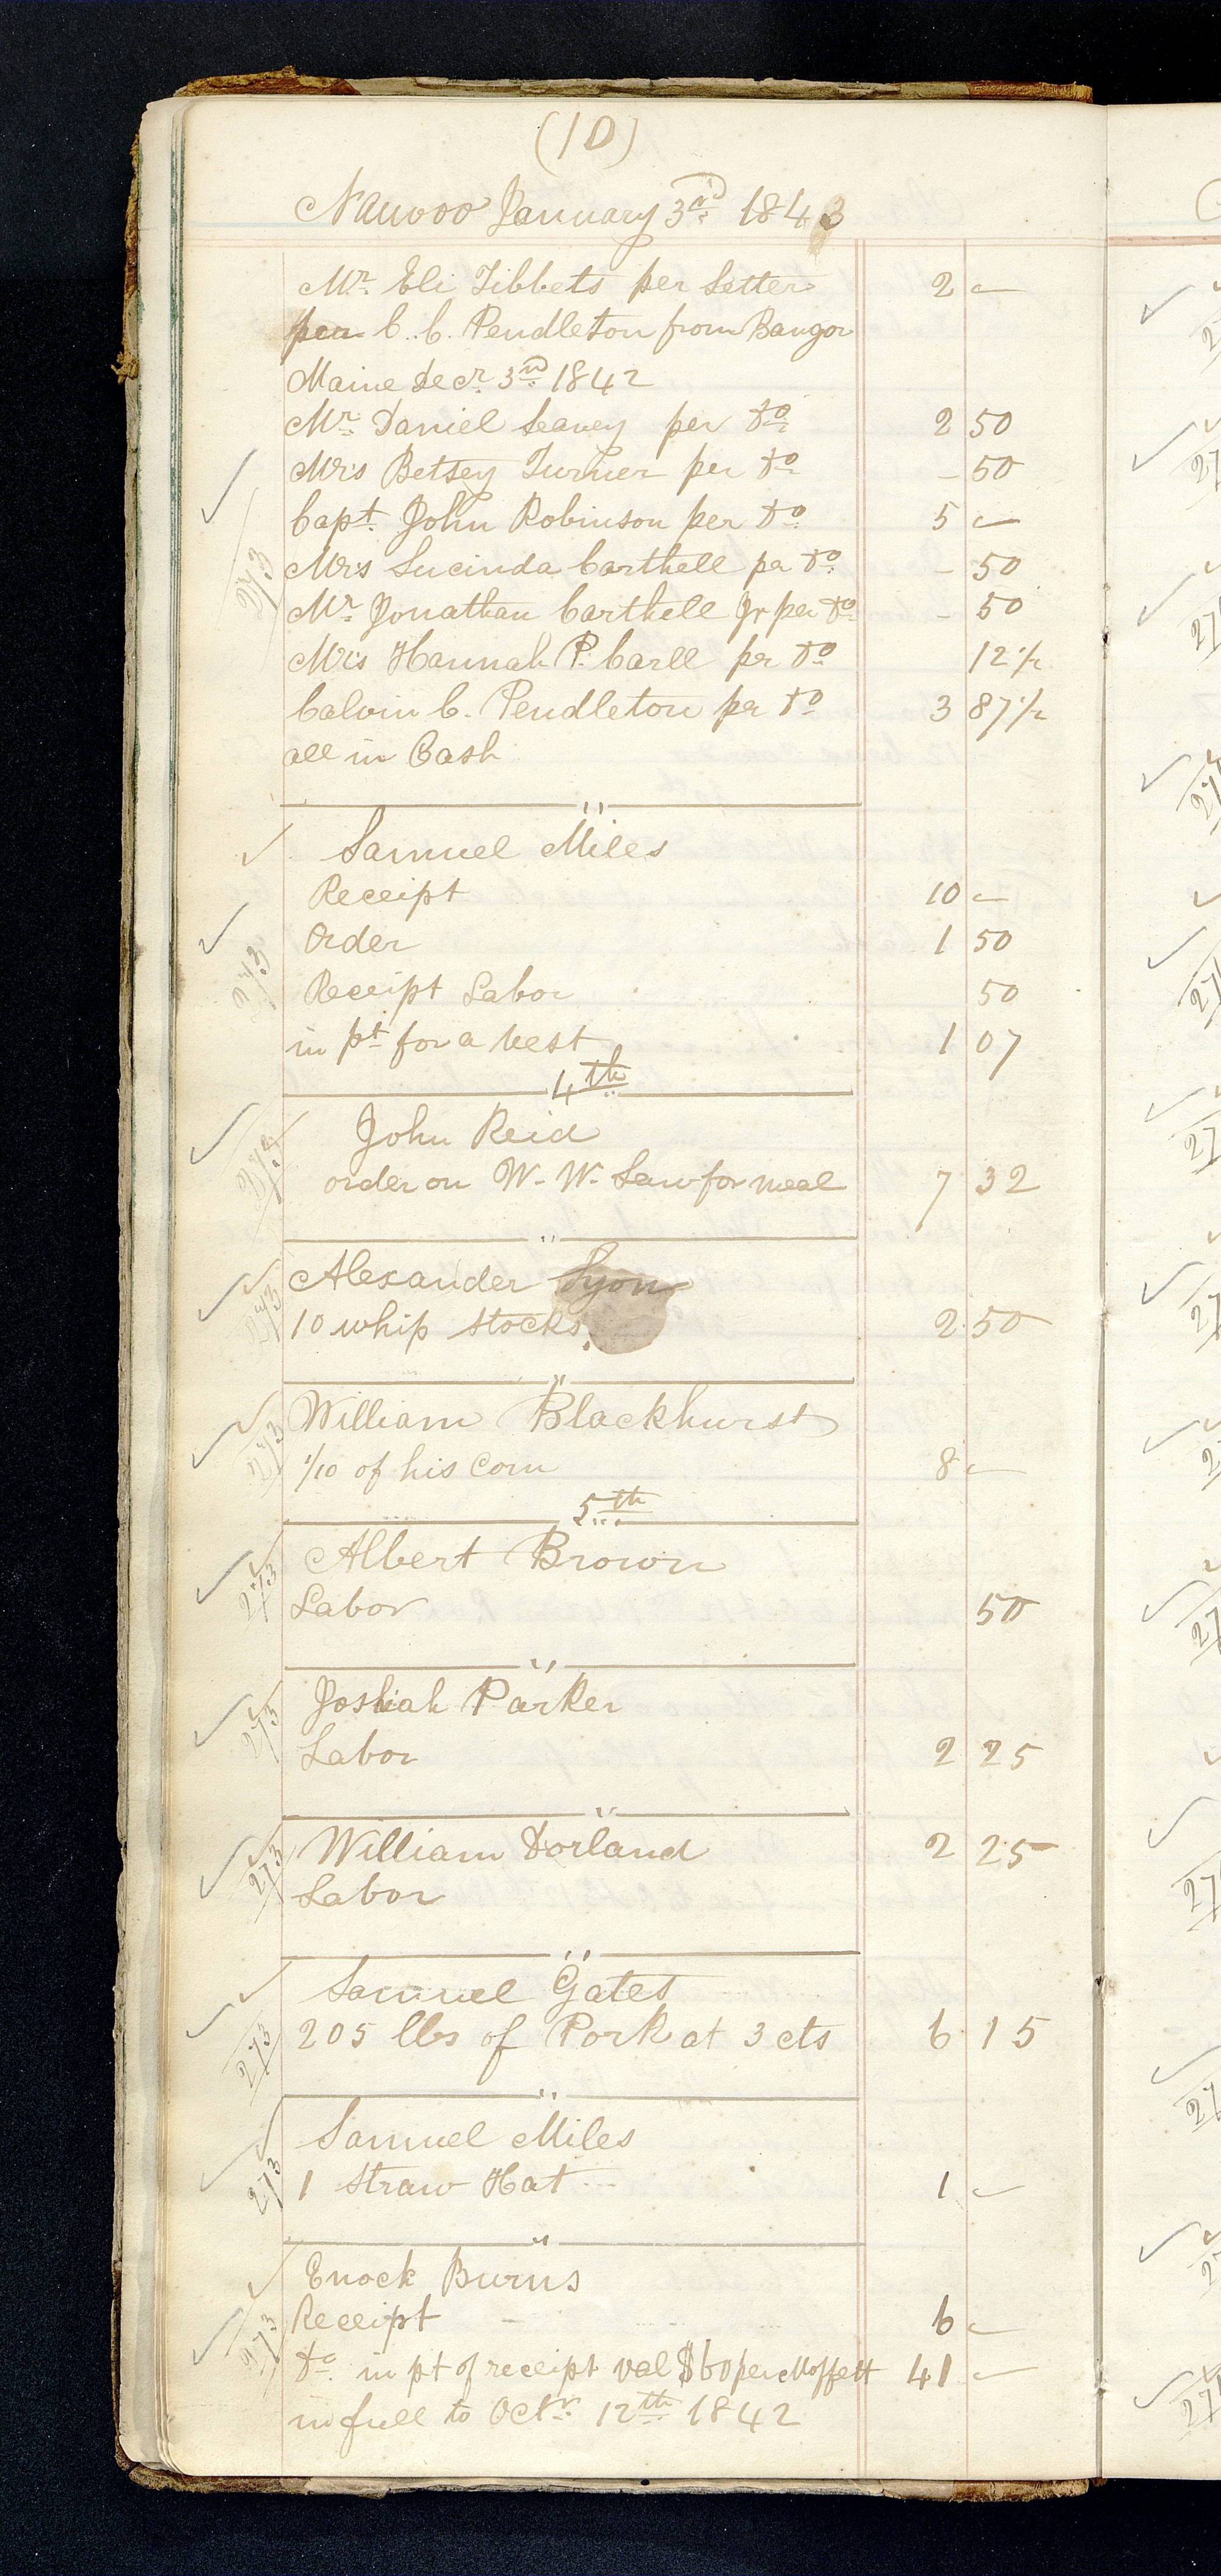 (10)
Nauvoo January 3rd 1843
Mr. Eli Tibbets per Letter 2 —
per C. C. Pendleton from Bangor
Maine Decr. 3rd 1842
Mr. Daniel Leavey per Do 2 50
Mrs Betsey Turner per Do - 50
Capt. John Robinson per Do 5 —
Mrs Lucinda Carthell per Do - 50
Mr. Jonathan Carthell Jr per Do - 50
Mrs Hannah P. Carll pr Do 12 1/2
Calvin C. Pendleton per Do 3 87 1/2
all in Cash
"
Samuel Miles
Receipt 10 —
Order 1 50
273
Receipt Labor 50
in pt for a vest 1 07
4th
John Reid
order on W. W. Law for meal 7 32
"
Alexander Lyon
10 whip stocks. 2 50
"
William Blackhurst
273
1/10 of his Corn 8 —
5th
Albert Brown
273
Labor 50
"
Josiah Parker
273
Labor 2 25
"
William Dorland 2 25
273
Labor
"
Samuel Gates
205 lbs of Pork at 3 cts 6 15
273
"
Samuel Miles
273
1 Straw Hat 1 —
"
Enock Burns
Receipt 6 —
273
Do in pt of receipt val $60 per Moffett 41 —
in full to Octr. 12th 1842